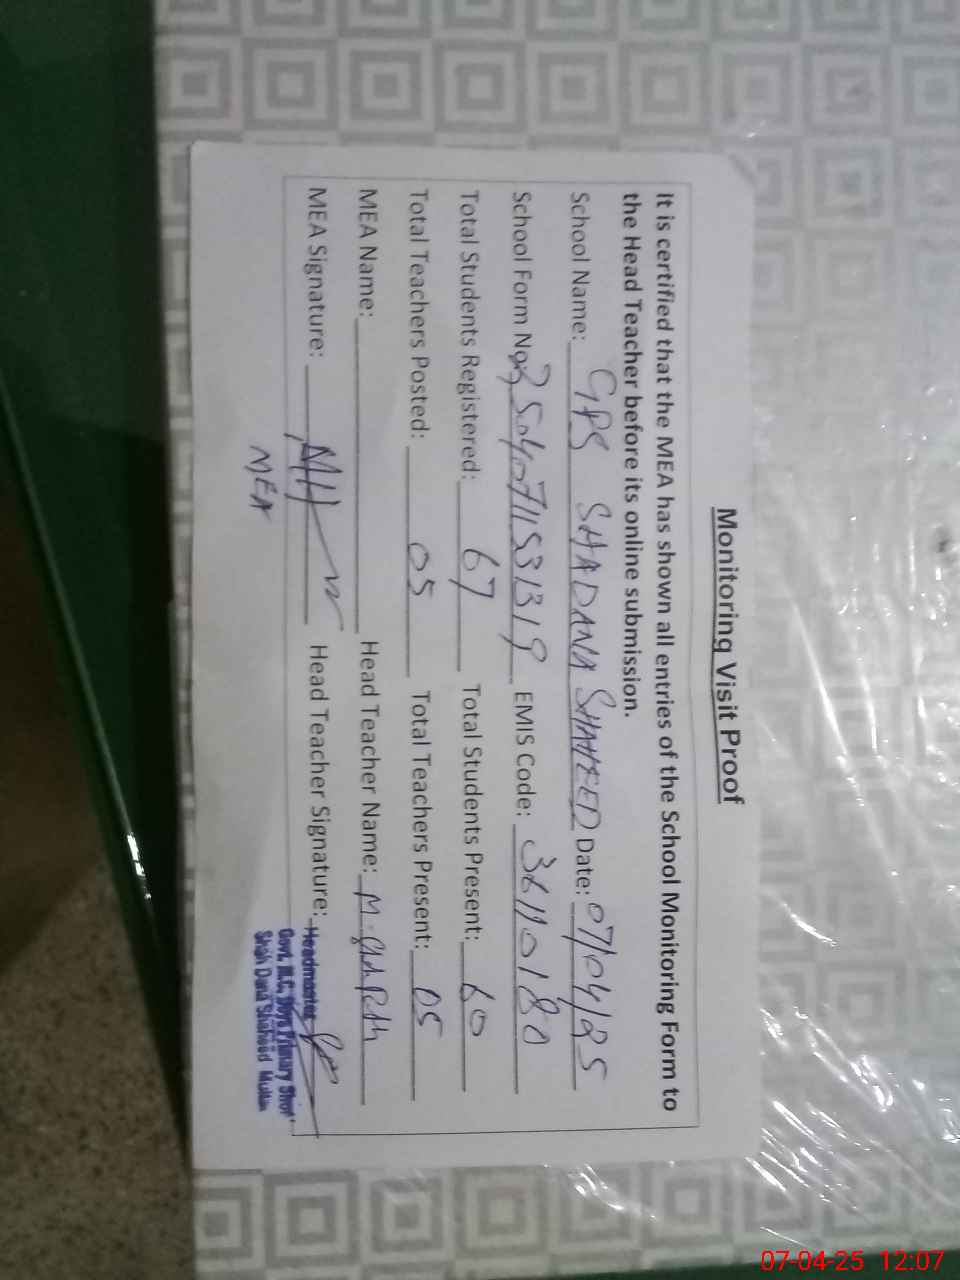 Monitoring Visit Proof
It is certified that the MEA has shown all entries of the School Monitoring Form to
the Head Teacher before its online submission.
School Name: GPS SHADANA SHAHEED Date: 07/04/25
School Form No: EMIS Code: 36110180
Total Students Registered: 67 Total Students Present: 60
Total Teachers Posted: 05 Total Teachers Present: 05
MEA Name: Head Teacher Name: M.
MEA Signature: Head Teacher Signature: Headmaster
MEA
Govt. M.C. Boys Primary
Shah Dana Shaheed Multan
07-04-25 12:07